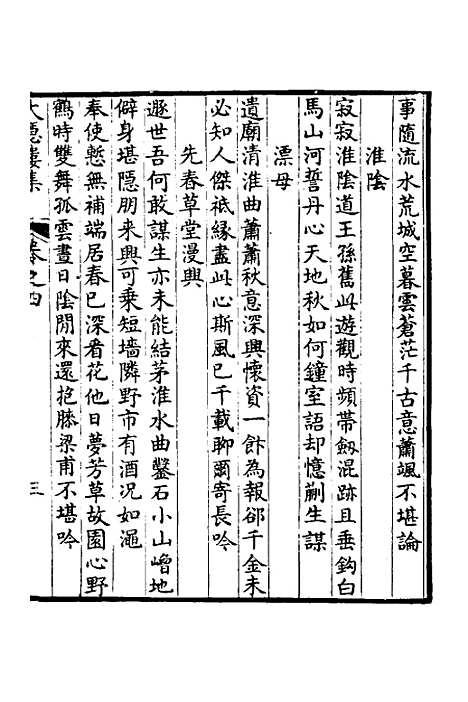 事隨流水荒城空暮雲蒼茫千古意蕭颯不堪論
淮陰
寂寂淮陰道王孫舊此遊觀時頻帶劔混跡且垂鈎白
馬山河誓丹心天地秋如何鐘室語却憶蒯生謀
漂母
遺廟清淮曲蕭蕭秋意深興懷資一飰為報郤千金未
必知人傑祇緣盡此心斯風已千載聊爾寄長吟
先春草堂漫興
遯世吾何敢謀生亦未能結茅淮水曲鑿石小山嶒地
僻身堪隱朋來興可乗短墻隣野市有酒况如澠
奉使慙無補端居春已深看花他日夢芳草故園心野
鶴時雙舞孤雲晝日陰閒來還抱膝梁甫不堪吟
大隱樓集
卷之四
三